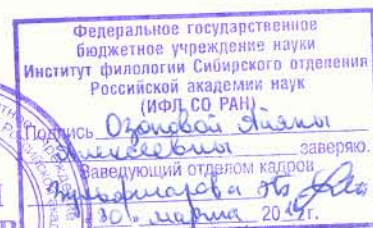 Федеральное государственное
бюджетное учреждение науки
Институт филологии Сибирского отделения
Российской академии наук
(ИФЛ СО РАН)
Подпись Озоновой Айяны
Алексеевны заверяю.
Заведующий отделом кадров
30 марта 20 г.